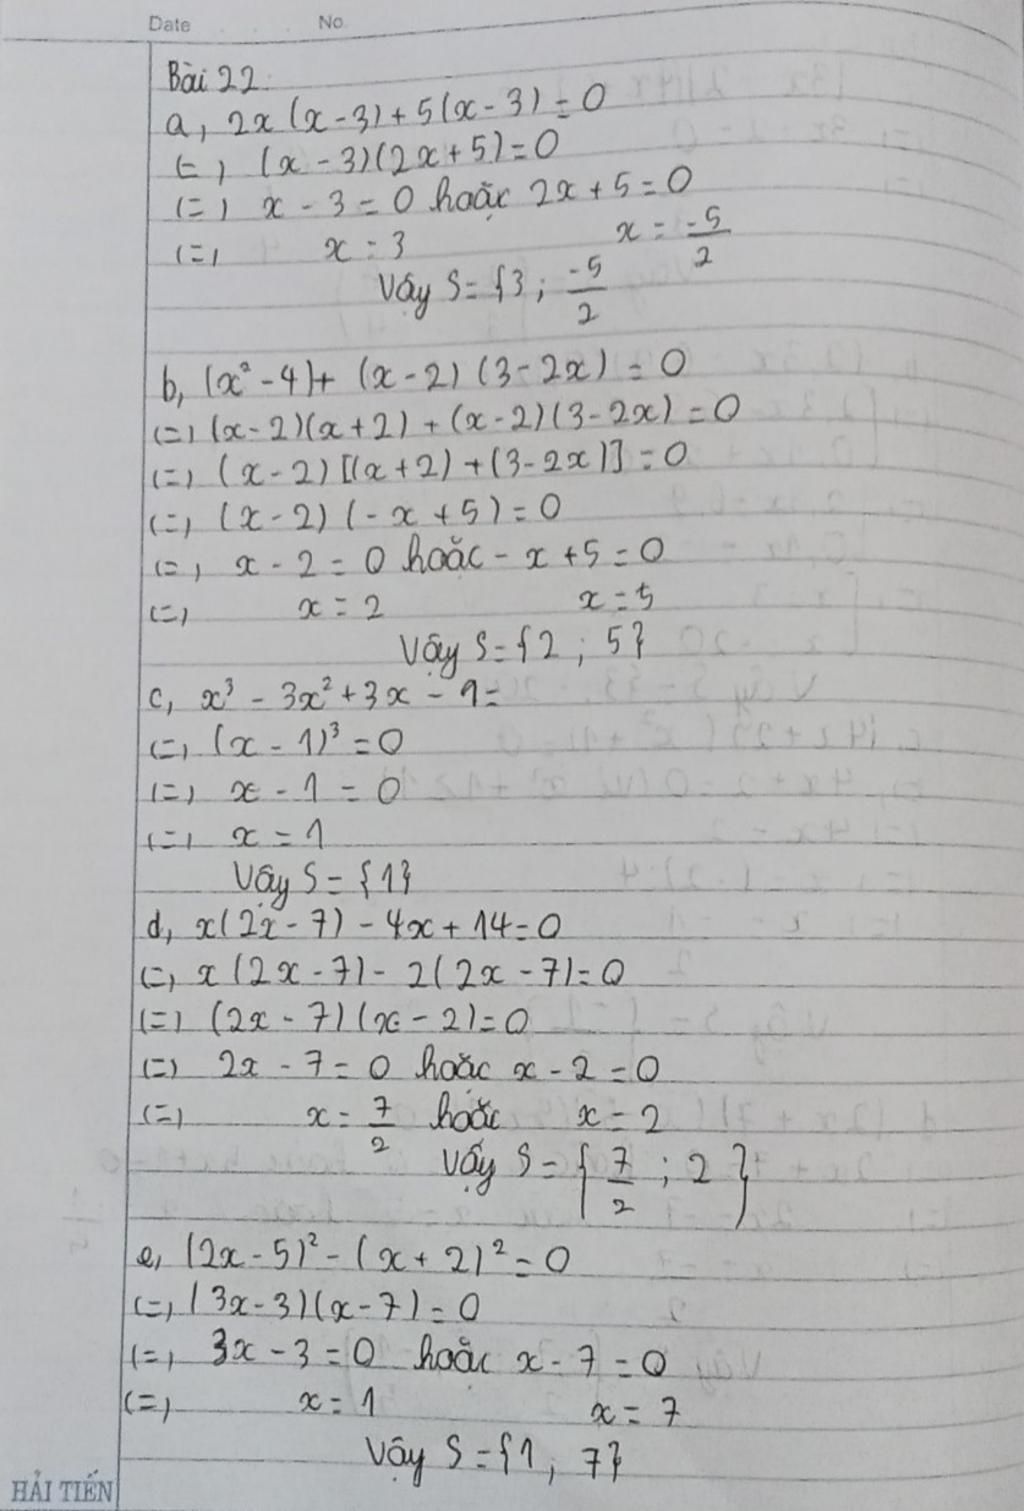 Date No.
Bài 22:
a, 2x(x-3)+5(x-3)=0
(=) (x-3)(2x+5)=0
(=) x-3=0 hoặc 2x+5=0
(=) x=3 x=-5/2
Vậy S={3; -5/2
b, (x²-4)+(x-2)(3-2x)=0
(=) (x-2)(x+2)+(x-2)(3-2x)=0
(=) (x-2)[(x+2)+(3-2x)]=0
(=) (x-2)(-x+5)=0
(=) x-2=0 hoặc -x+5=0
(=) x=2 x=5
Vậy S={2; 5}
c, x³-3x²+3x-1=
(=) (x-1)³=0
(=) x-1=0
(=) x=1
Vậy S={1}
d, x(2x-7)-4x+14=0
(=) x(2x-7)-2(2x-7)=0
(=) (2x-7)(x-2)=0
(=) 2x-7=0 hoặc x-2=0
(=) x=7/2 hoặc x=2
Vậy S={7/2; 2}
e, (2x-5)²-(x+2)²=0
(=) (3x-3)(x-7)=0
(=) 3x-3=0 hoặc x-7=0
(=) x=1 x=7
Vậy S={1, 7}
HẢI TIẾN